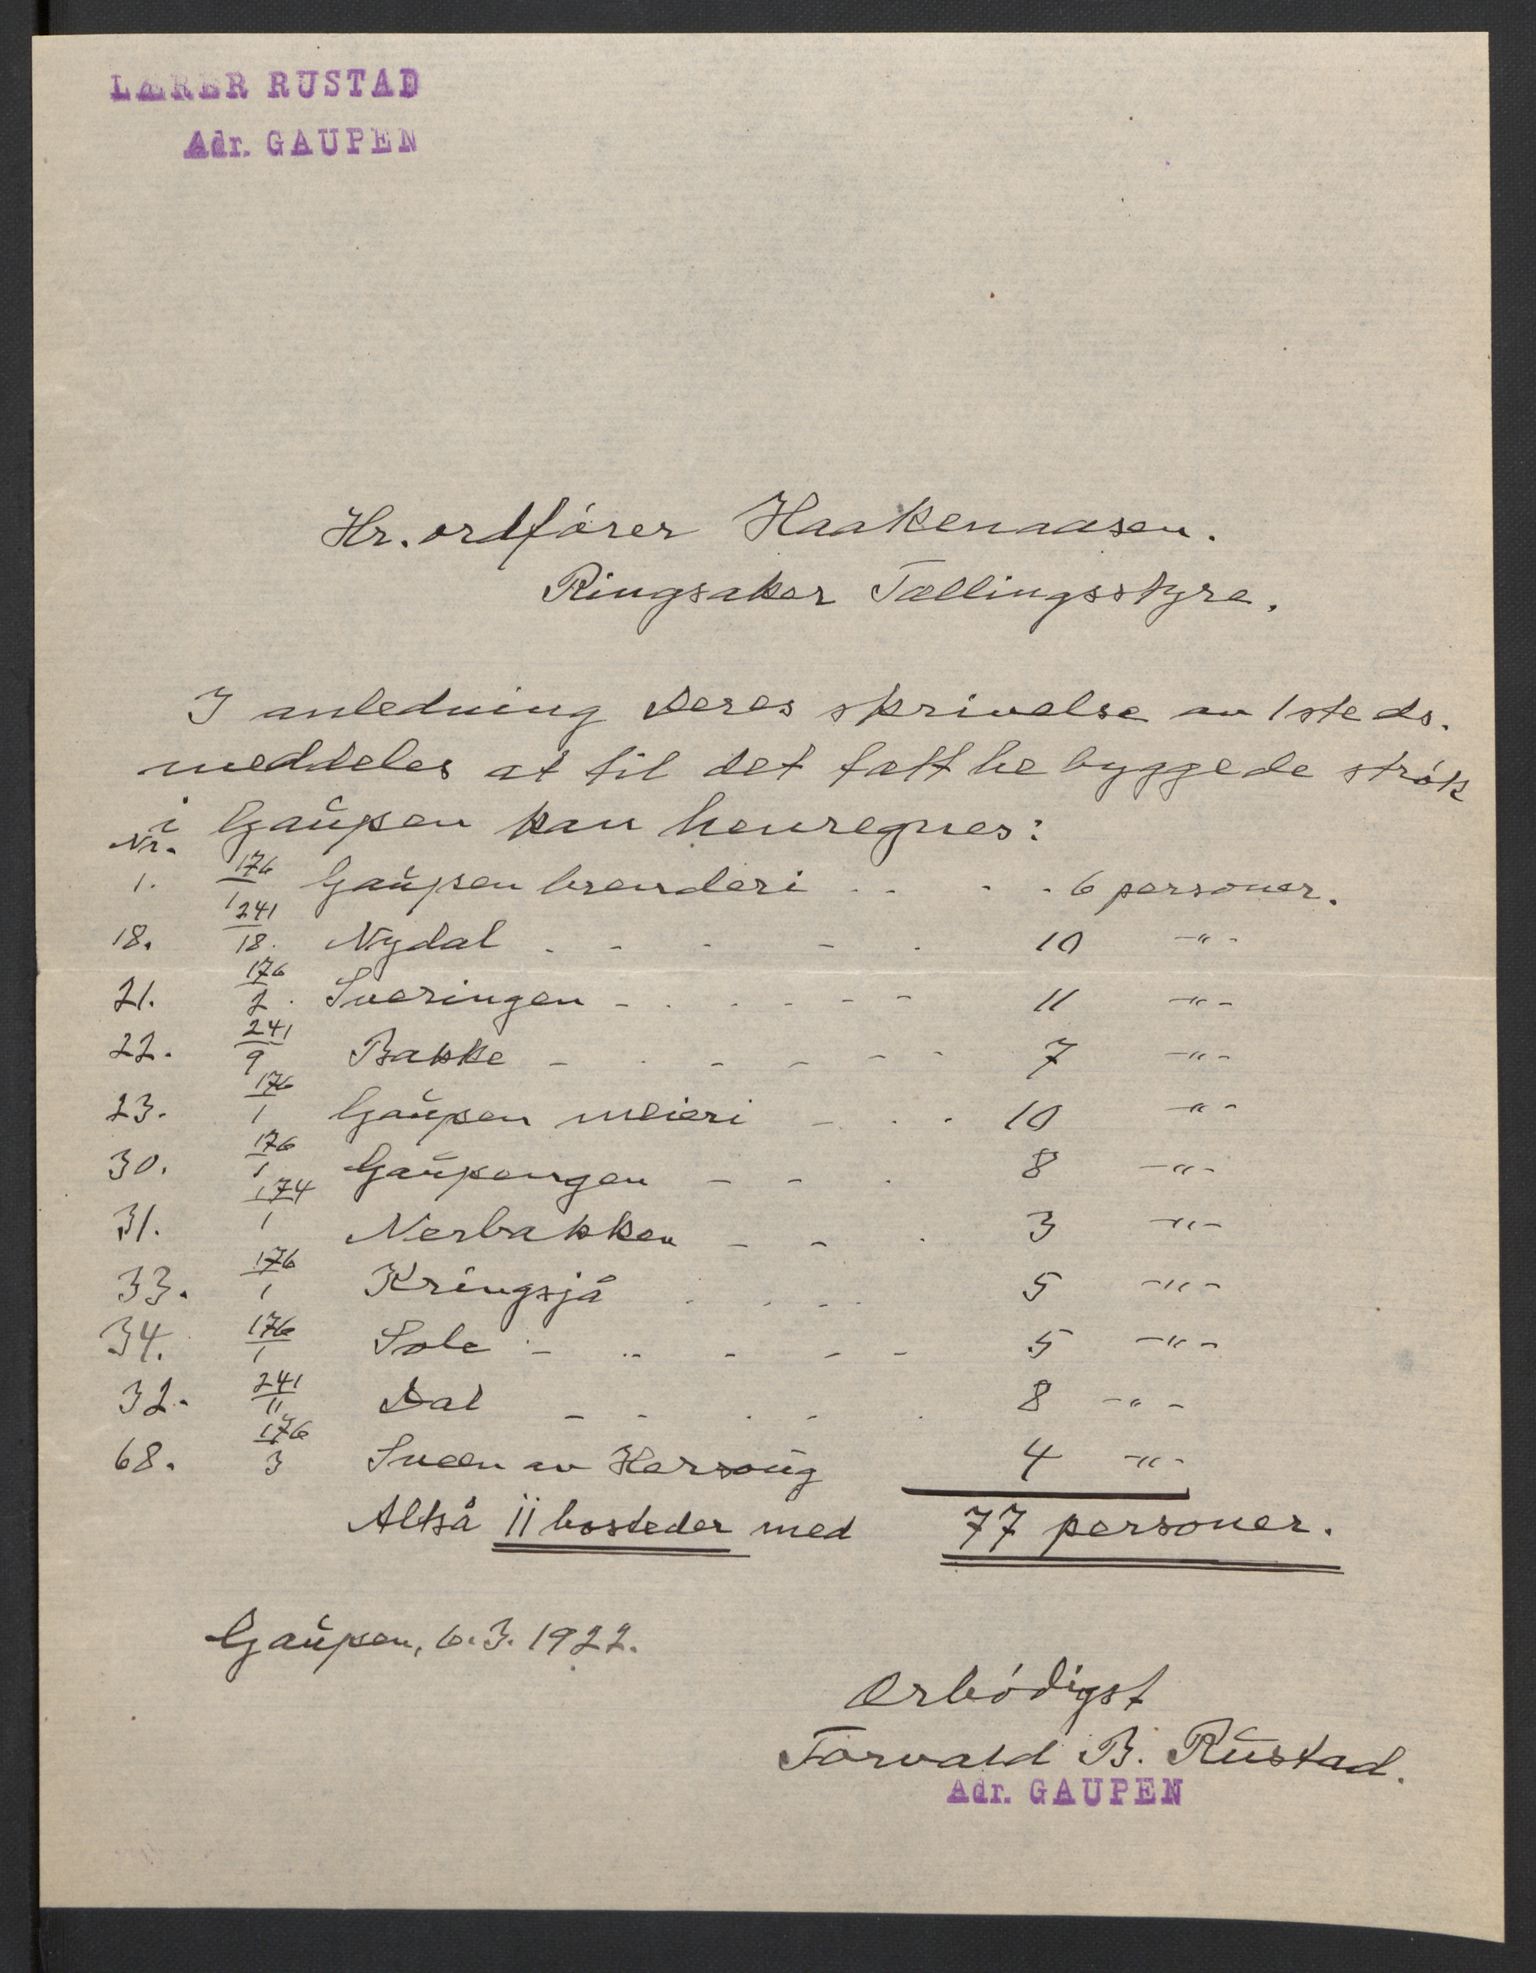 LÆRER RUSTAD
Adr. GAUPEN
Hr. ordfører Haakenaasen.
Ringsaker Tællingsstyre.
I anledning Deres skrivelse av 1ste ds.
meddeles at til det tætt bebyggede strøk
i Gaupen kan henregnes:
Nr.
1. 176/1 Gaupen brenderi - - - 6 personer.
18. 241/18 Nydal - - - - - 10 -"-
21. 176/2 Sveringen - - - - - - 11 -"-
22. 241/9 Bakke - - - - - - 7 -"-
23. 176/1 Gaupen meieri - - - 10 -"-
30. 176/1 Gaupengen - - - 8 -"-
31. 174/1 Nerbakken - - - 3 -"-
33. 176/1 Kringsjå - - - - 5 -"-
34. 176/1 Sole - - - - - 5 -"-
32. 241/11 Dal - - - - - 8 -"-
68. 176/3 Sveen av Hersoug 4 -"-
Altså 11 bosteder med 77 personer.
Gaupen, 6.3.1922.
Ærbødigst
Torvald B. Rustad.
Adr. GAUPEN